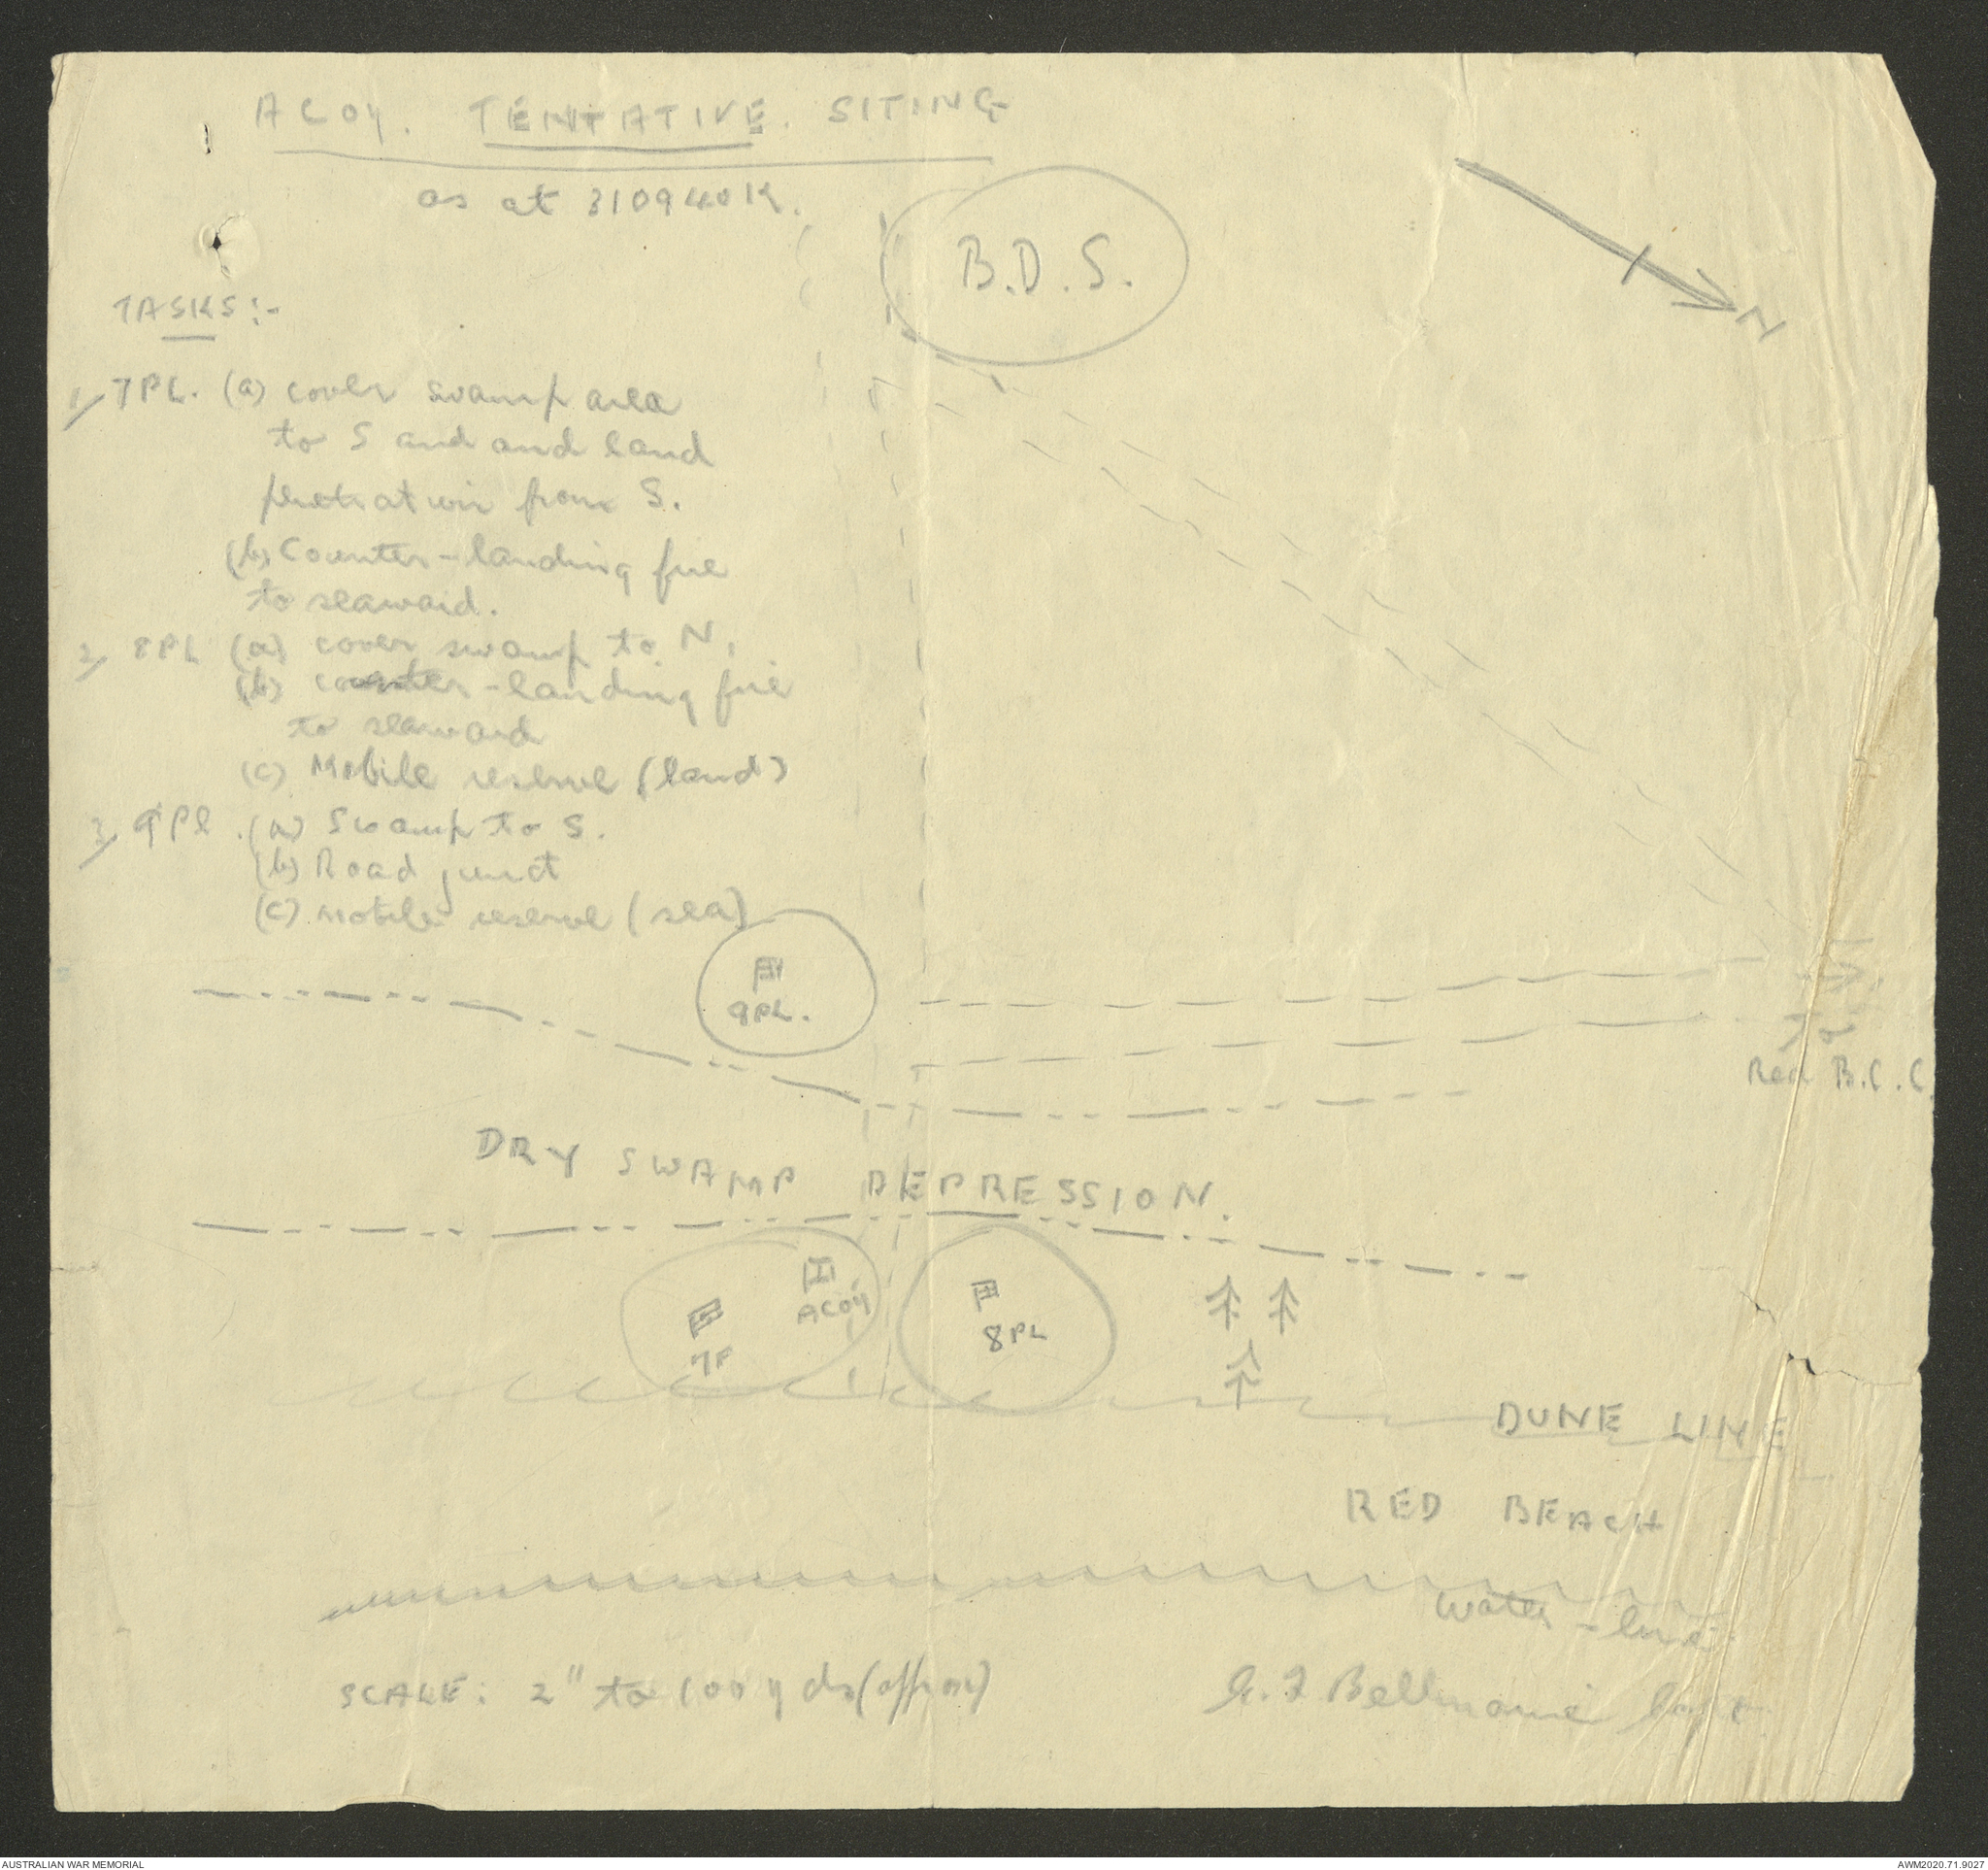 A COY. TENTATIVE. SITING
as at 310940K.
B.D.S.
N
TASKS:-
1/ 7PL. (a) cover swamp area
to S and and land
penetration from S.
(b) Counter-landing fire
to seaward.
2/ 8PL (a) cover swamp to N.
(b) counter-landing fire
to seaward
(c) Mobile reserve (land)
3/ 9Pl. (a) Swamp to S.
(b) Road junct
(c) mobile reserve (sea)
9PL.
To
Red B.C.C.
DRY SWAMP DEPRESSION.
A COY
7P
8PL
DUNE LINE
RED BEACH
Water-line
SCALE: 2" to 100 yds (approx)
Capt
AUSTRALIAN WAR MEMORIAL
AWM2020.71.9027